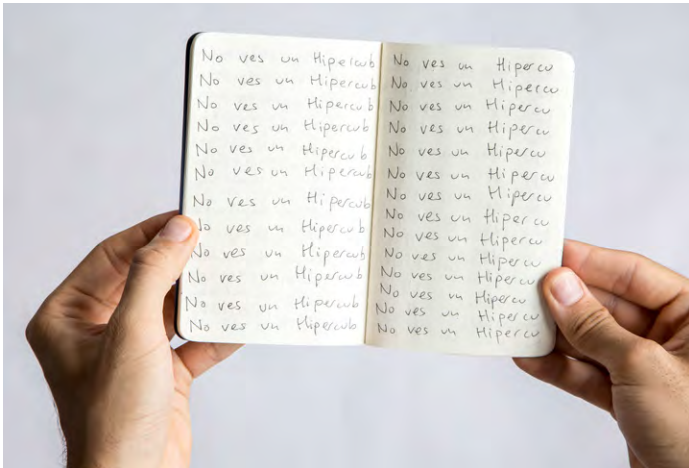 No ves un Hipercub
No ves un Hipercub
No ves un Hipercub
No ves un Hipercub
No ves un Hipercub
No ves un Hipercub
No ves un Hipercub
No ves un Hipercub
No ves un Hipercub
No ves un Hipercub
No ves un Hipercub
No ves un Hipercub
No ves un Hipercu
No ves un Hipercu
No ves un Hipercu
No ves un Hipercu
No ves un Hipercu
No ves un Hipercu
No ves un Hipercu
No ves un Hipercu
No ves un Hipercu
No ves un Hipercu
No ves un Hipercu
No ves un Hipercu
No ves un Hipercu
No ves un Hipercu